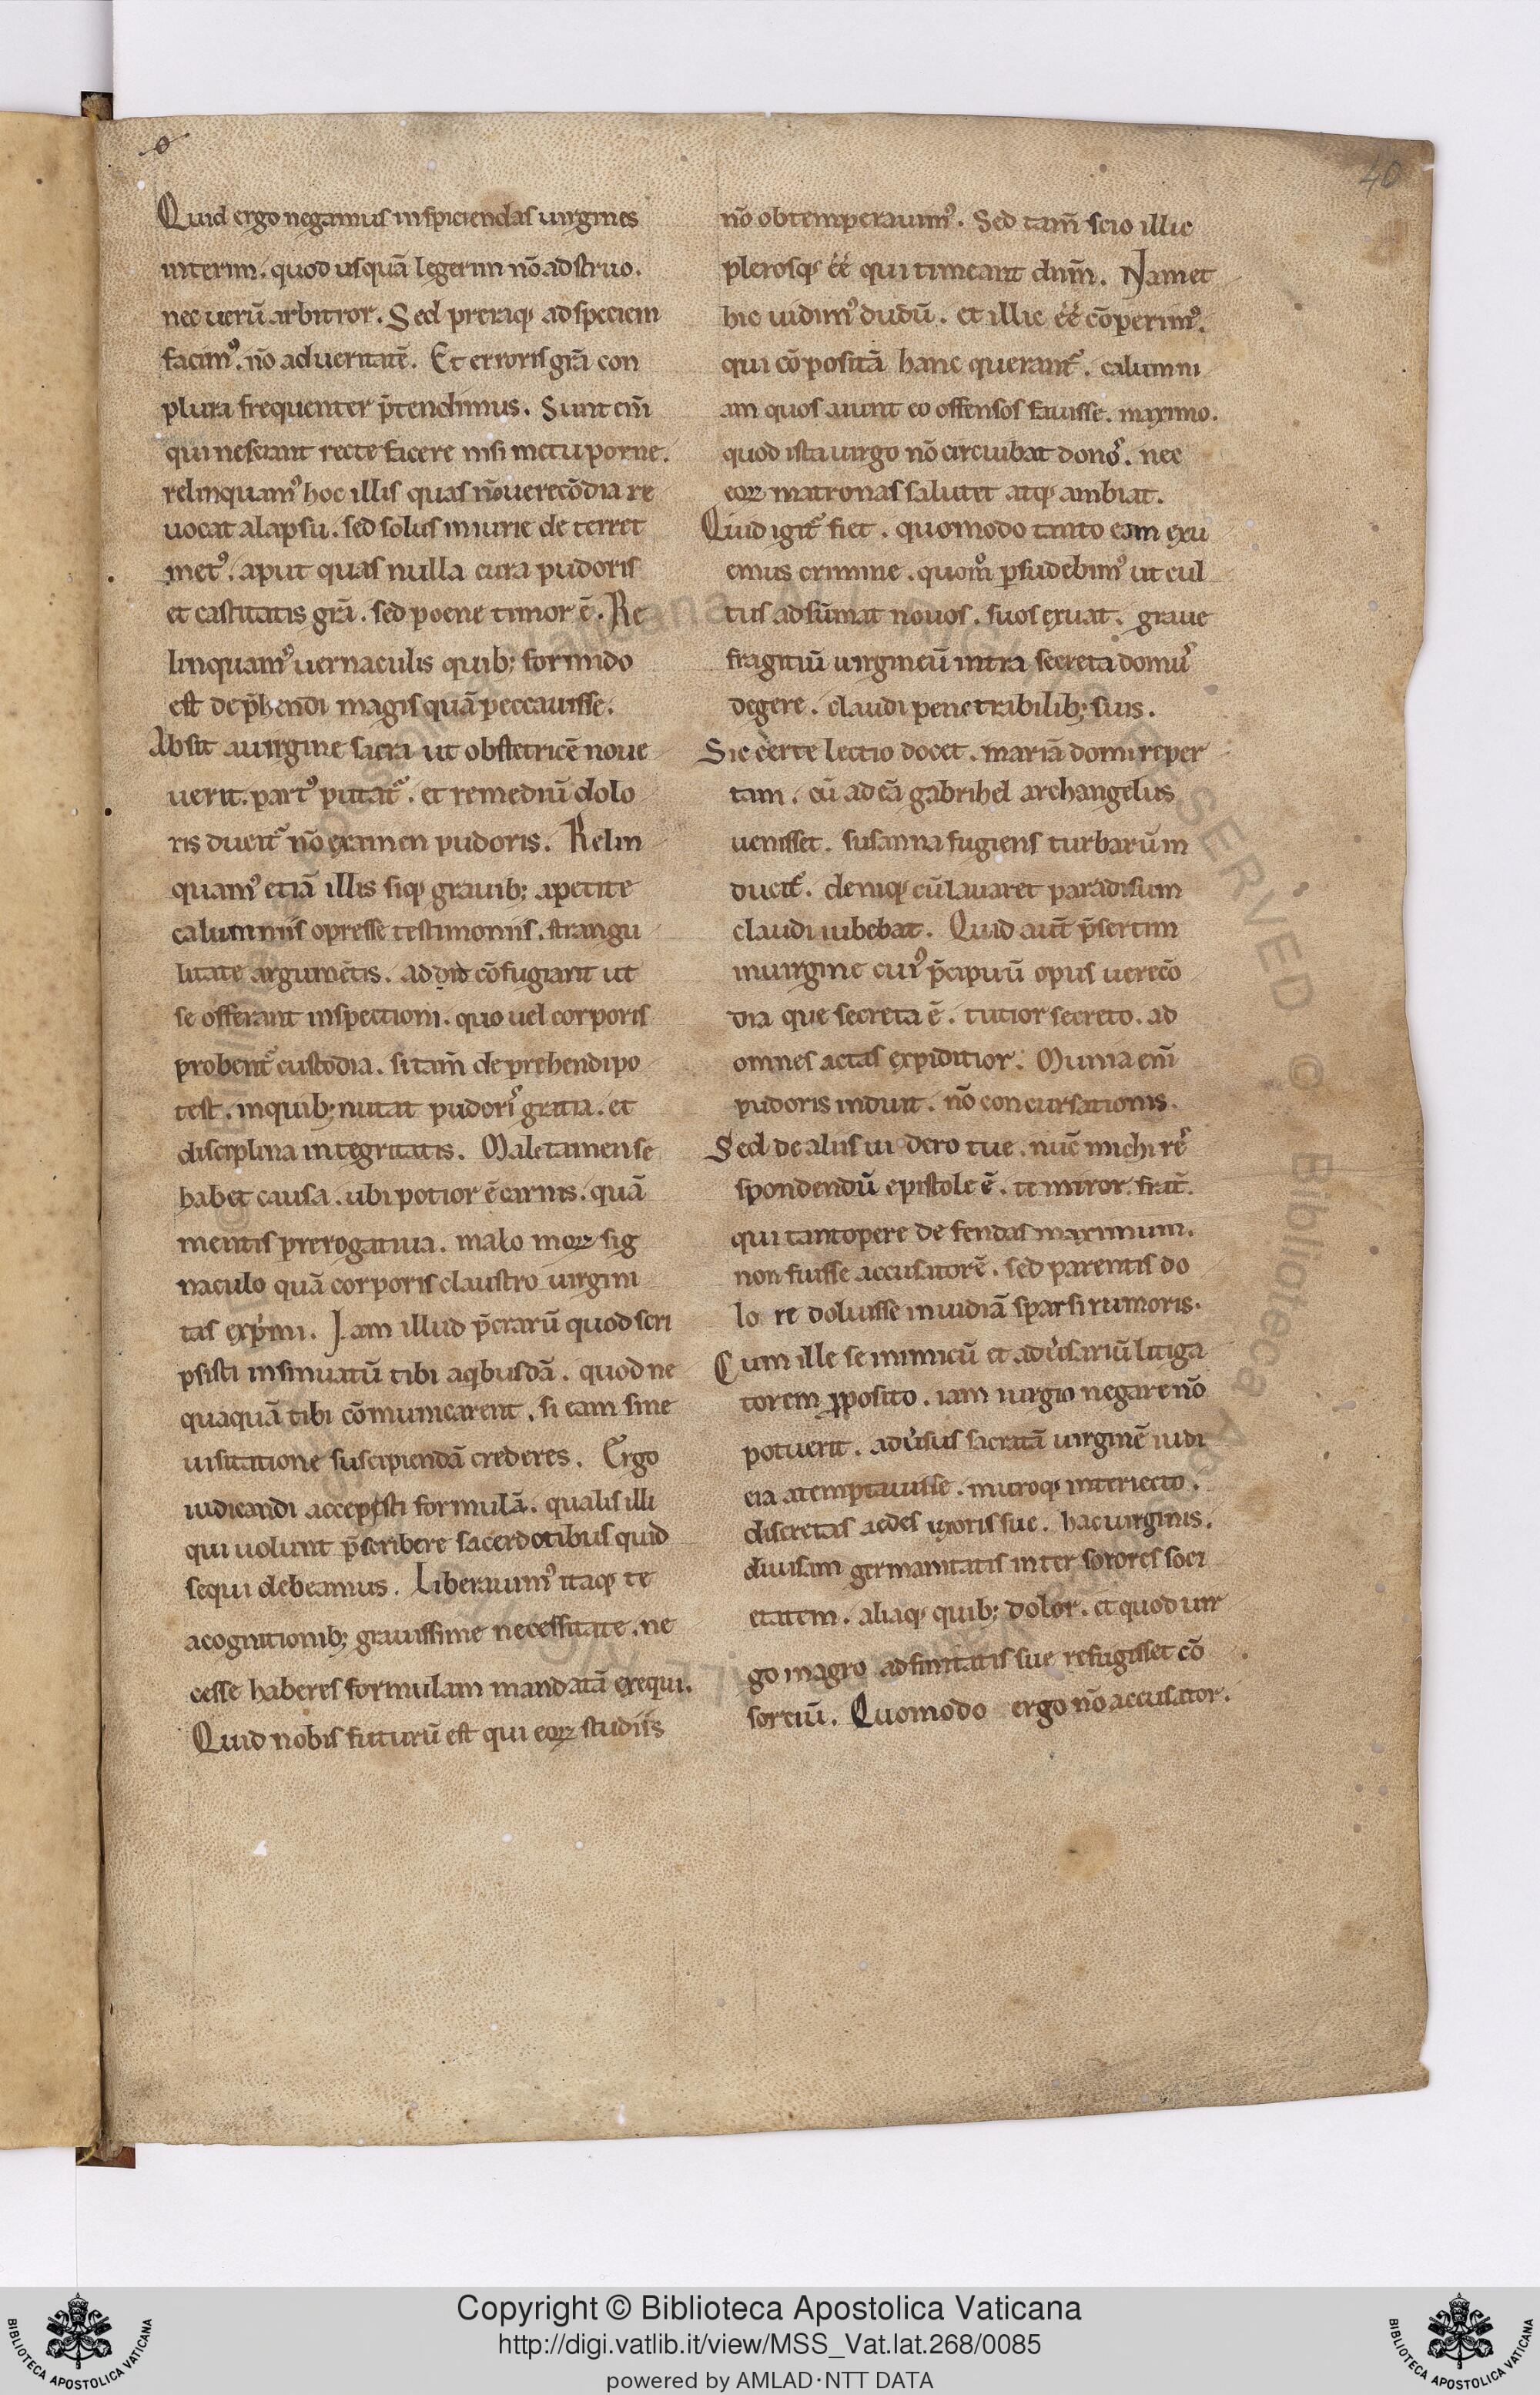 40
Quid ergo negamus inspiciendas uirgines
interim. quod usquā legerim nō adstruo.
nec uerū arbitror. Sed pleraq; ad speciem
facim᾿. nō ad ueritatē. Et erroris grā con
plura frequenter p̄tendimus. Sunt eni̅
qui nesciant recte facere nisi metu poene.
relinquam᾿ hoc illis quas nō uerecōdia re
uocat a lapsu. sed solus iniurie de terret
met᾿. aput quas nulla cura pudoris
et castitatis grā. sed poene timor ē. Re
linquam᾿ uernaculis quib; formido
est dep̄hendi magis quā peccauisse.
Absit a uirgine sacra ut obstetricē noue
uerit. part᾿ putat᷑. et remediū dolo
ris ducit᷑ nō examen pudoris. Relin
quam᾿ etiā illis siq; grauib; apetite
calumniis opresse testimoniis. strangu
litate argumētis. ad did cōfugiant ut
se offerant inspectioni. quo uel corporis
probent᷑ custodia. si tam̄ deprehendi po
test. in quib; nutat pudori᾿ gratia. et
disciplina integritatis. Male tamen se
habet causa. ubi potior ē carnis. quā
mentis prerogatiua. malo moꝝ sig
naculo quā corporis claustro uirgini
tas exp̄imi. Jam illud p̄crarū quod scri
psisti insinuatū tibi aq̇busdā. quod ne
quaquā tibi cōmunicarent. si eam sine
uisitatione suscipiendā crederes. Ergo
iudicandi accepisti formulā. qualis illi
qui uolunt p̄scribere sacerdotibus quid
sequi debeamus. Liberauim᾿ itaq; te
acognitionib; grauissime necessitate. ne
cesse haberes formulam mandatā exequi.
Quid nobis futurū est qui eoꝝ studiis
nō obtemperauim᾿. Sed tam̄ scio illic
plerosq; éé qui timeant dnm̄. Nam et
hic uidim᾿ dudū. et illic éé cōperim᾿.
qui cōpositā hanc querant᷑. calumni
am quos aiunt eo offensos fauisse. maximo.
quod ista uirgo nō circuibat domo᾿. nec
eoꝝ matronas salutet atq; ambiat.
Quid igit᷑ fiet. quomodo tanto eam exu
emus crimine. quom̊ p̄sudebim᾿ ut cul
tus adsūmat nouos. suos exuat. graue
fragitiū uirgineū intra secreta domu᾿
degere. claudi penetrabilib; suis.
Sic certe lectio docet. mariā domi reper
tam. cū ad eā gabrihel archangelus
uenisset. susanna fugiens turbarū in
ducit᷑. deniq; cū lauaret paradisum
claudi iubebat. Quid aut̄ p̄sertim
in uirgine cui᾿ p̄cipuū opus uerecō
dia que secreta ē. tutior secreto. ad
omnes actas expiditior. Munia eni̅
pudoris induit. nō concursationis.
Sed de aliis ui dero tue. nūc michi re᾿
spondendū epistole ē. te miror. frat̄.
qui tantopere de fendas maximum.
non fuisse accusatorē. sed parentis do
lo re doluisse inuidiā sparsi rumoris.
Cum ille se inimicū et adu̇sariū litiga
torem ꝓposito. iam uirgio negare nō
potuerit. adu̇sus sacratā uirginē iudi
cia atemptauisse. muroq; interiecto.
discretas aedes uxoris sue. hac uirginis.
diuisam germanitatis inter sorores soci
etatem. aliaq; quib; dolor. et quod uir
go magro adfinitatis sue refugisset cō
sortiū. Quomodo ergo nō accusator.
Copyright © Biblioteca Apostolica Vaticana
http://digi.vatlib.it/view/MSS_Vat.lat.268/0085
powered by AMLAD·NTT DATA